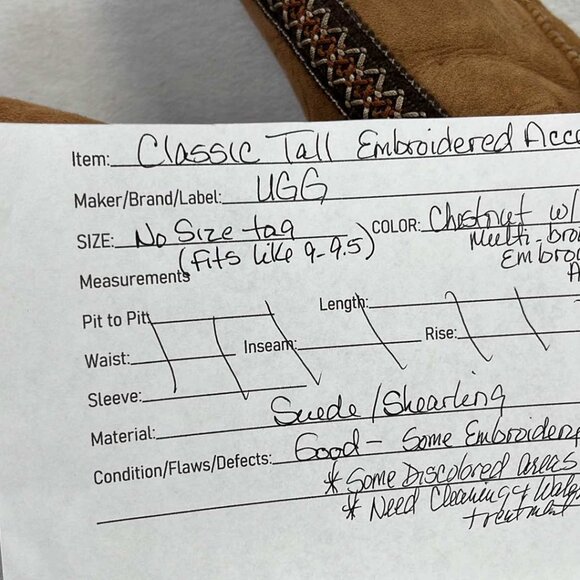 Item: Classic Tall Embroidered Acce
Maker/Brand/Label: UGG
SIZE: No Size tag COLOR: Chestnut w/
(fits like 9-9.5) Multi-bro
Embroi
Measurements
Pit to Pit: Length:
Waist: Inseam: Rise:
Sleeve:
Material: Suede/Shearling
Condition/Flaws/Defects: Good - Some Embroidery
* Some Discolored areas
* Need Cleaning &
treatment